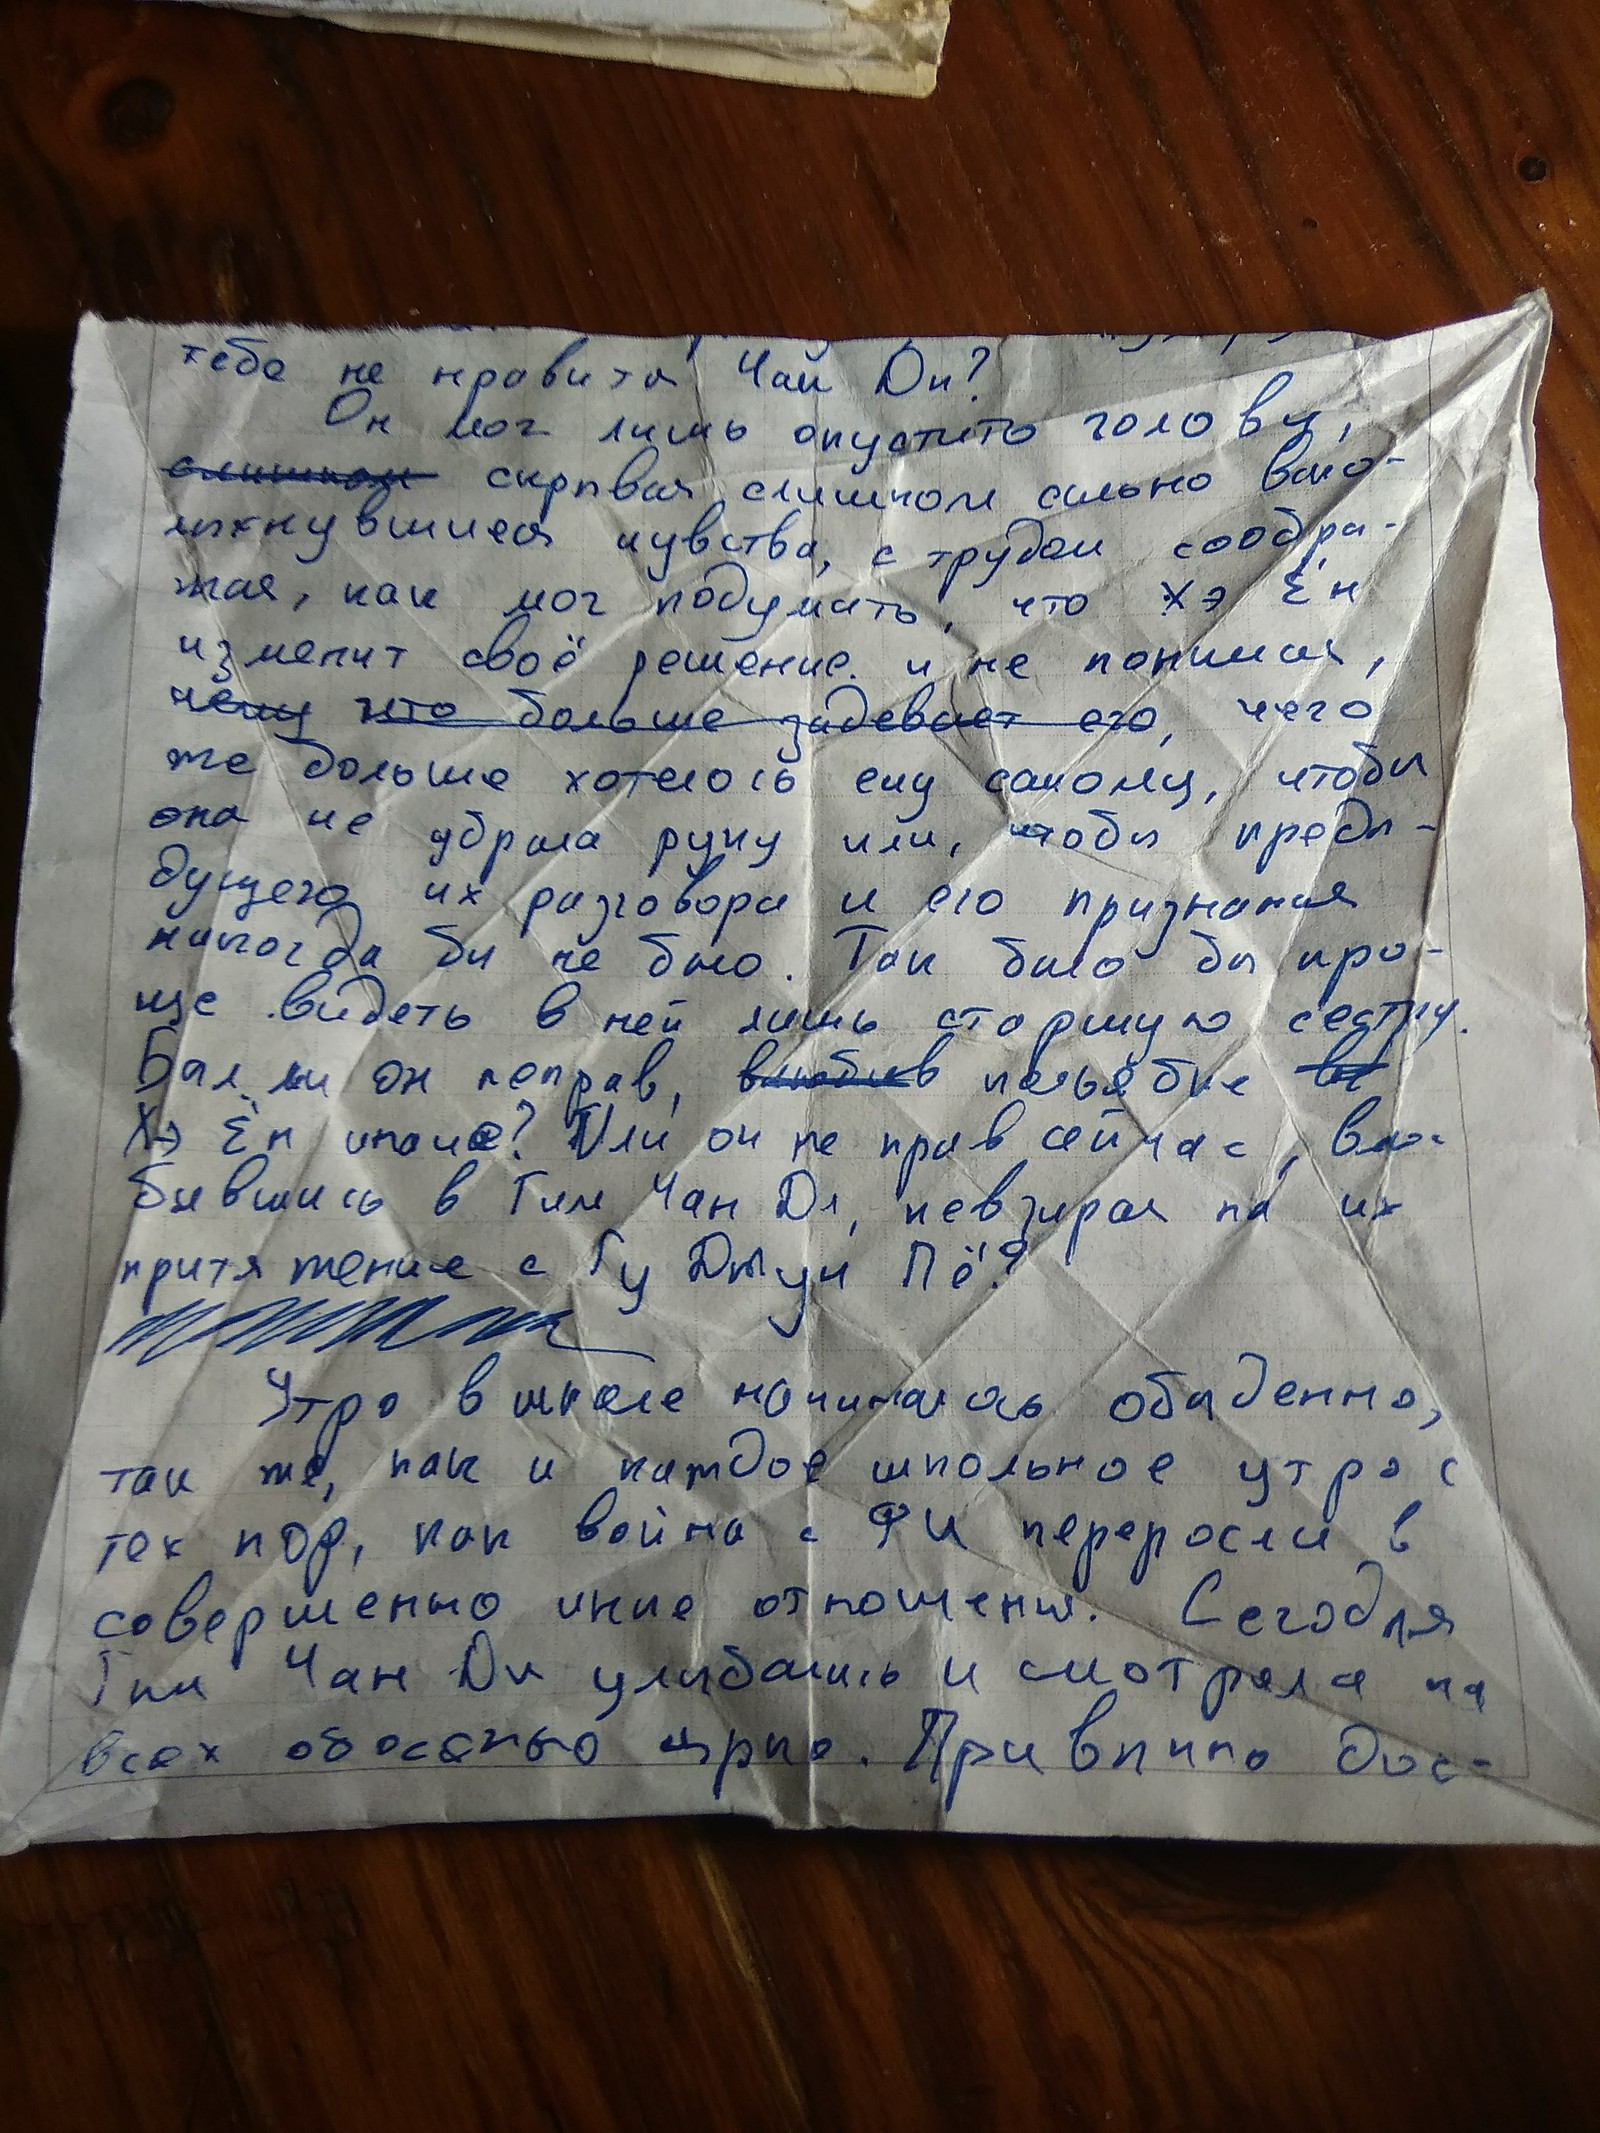 тебе не нравится Чан Ди?
Он мог лишь опустить голову,
слишком скрывая слишком сильно вспо-
лыхнувшиеся чувства, с трудом сообра-
жая, как мог подумать, что Хэ Ён
изменит своё решение и не понимая,
чему что больше задевает его, чего
же больше хотелось ему самому, чтобы
она не убрала руку или, чтобы преды-
дущего их разговора и его признания
никогда бы не было. Так было бы про-
ще видеть в ней лишь старшую сестру.
Был ли он неправ, влюбив полюбив
Хэ Ён иначе? Или он не прав сейчас, влю-
бившись в Гым Чан Ди, невзирая на их
притяжение с Гу Джун Пё?
Утро в школе начиналось обыденно,
так же, как и каждое школьное утро с
тех пор, как война с Ф4 переросли в
совершенно иные отношения. Сегодня
Гым Чан Ди улыбалась и смотрела на
всех обоса ярко. Привычно дос-